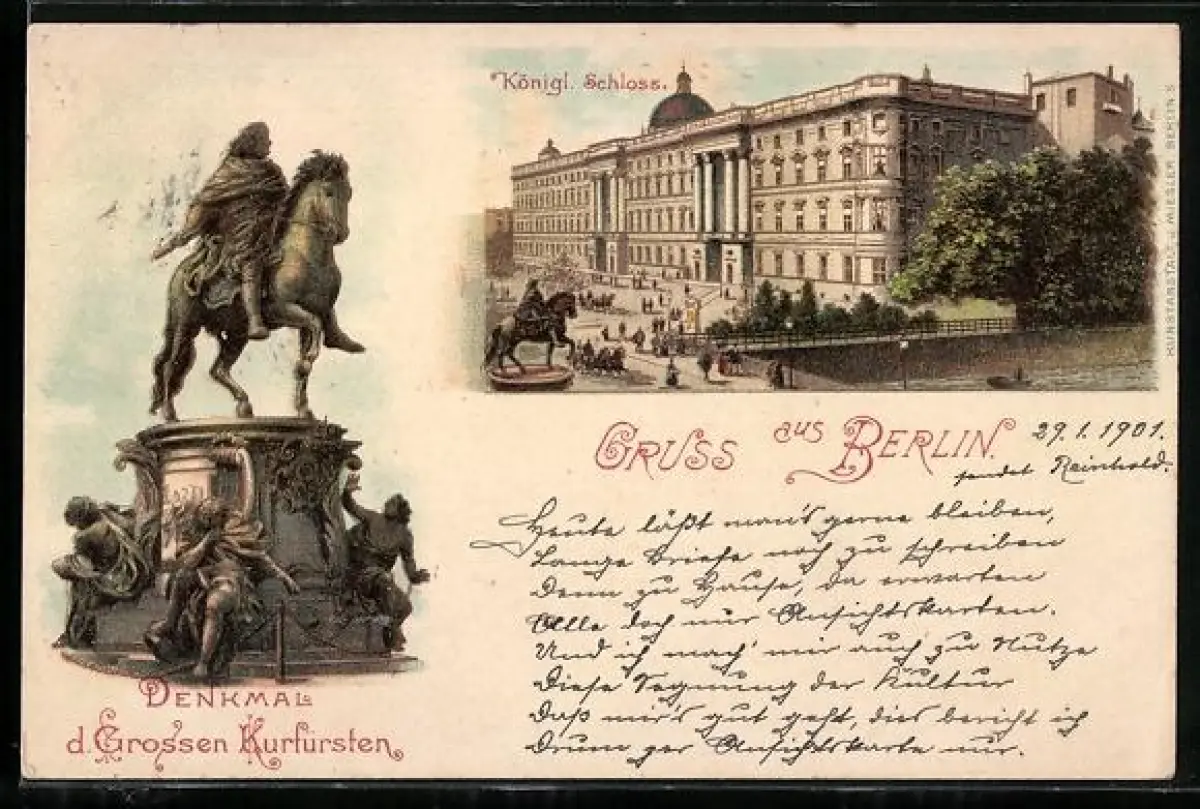 Königl. Schloss.
KUNSTANSTALT J. MIESLER, BERLIN S.
GRUSS aus BERLIN.
29.1.1901.
sendet Reinhold.
Heute läßt man's gerne bleiben,
Lange Briefe noch zu schreiben
Denn zu Hause, da erwarten
Alle doch nur Ansichtskarten.
Und ich mach' mir auch zu Nutze
Diese Segnung der Kultur
Daß mir's gut geht, dies bericht ich
Drum per Ansichtskarte nur.
DENKMAL
d. Grossen Kurfürsten.